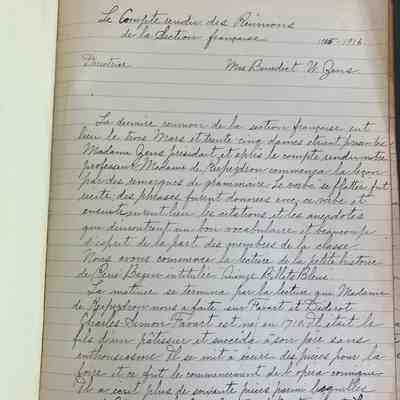 Le Compte rendu des Réunions
de la Section française 1915-1916.
Directrice Mrs Benedict U. Gens
La dernière reunion de la section française eut
lieu le trois Mars et trente cinq dames étaient présentes
Madame Gens présidant et après le compte rendu notre
professeur Madame de Perpezdron commença la leçon
par des remarques de grammaire. Le verbe se flatter fut
récité, des phrases furent données avec ce verbe et
ensuite eurent lieu les citations et les anecdotes
que démontrent un bon vocabulaire et beaucoup
d'esprit de la part des membres de la classe.
Nous avons commence la lecture de la petite histoire
de René Bazin intitulée Quinze Billets Bleus.
La matinée se termina par la lecture que Madame
de Perpezdron nous a faite, sur Favart et Diderot
Charles Simon Favart est né en 1710. Il était le
fils d'un pâtissier et succéda à son père sans
enthousiasme. Il se mit à écrire des pièces pour la
foire et ce fut le commencement de l'opera comique.
Il a écrit plus de soixante pièces parmi lesquelles